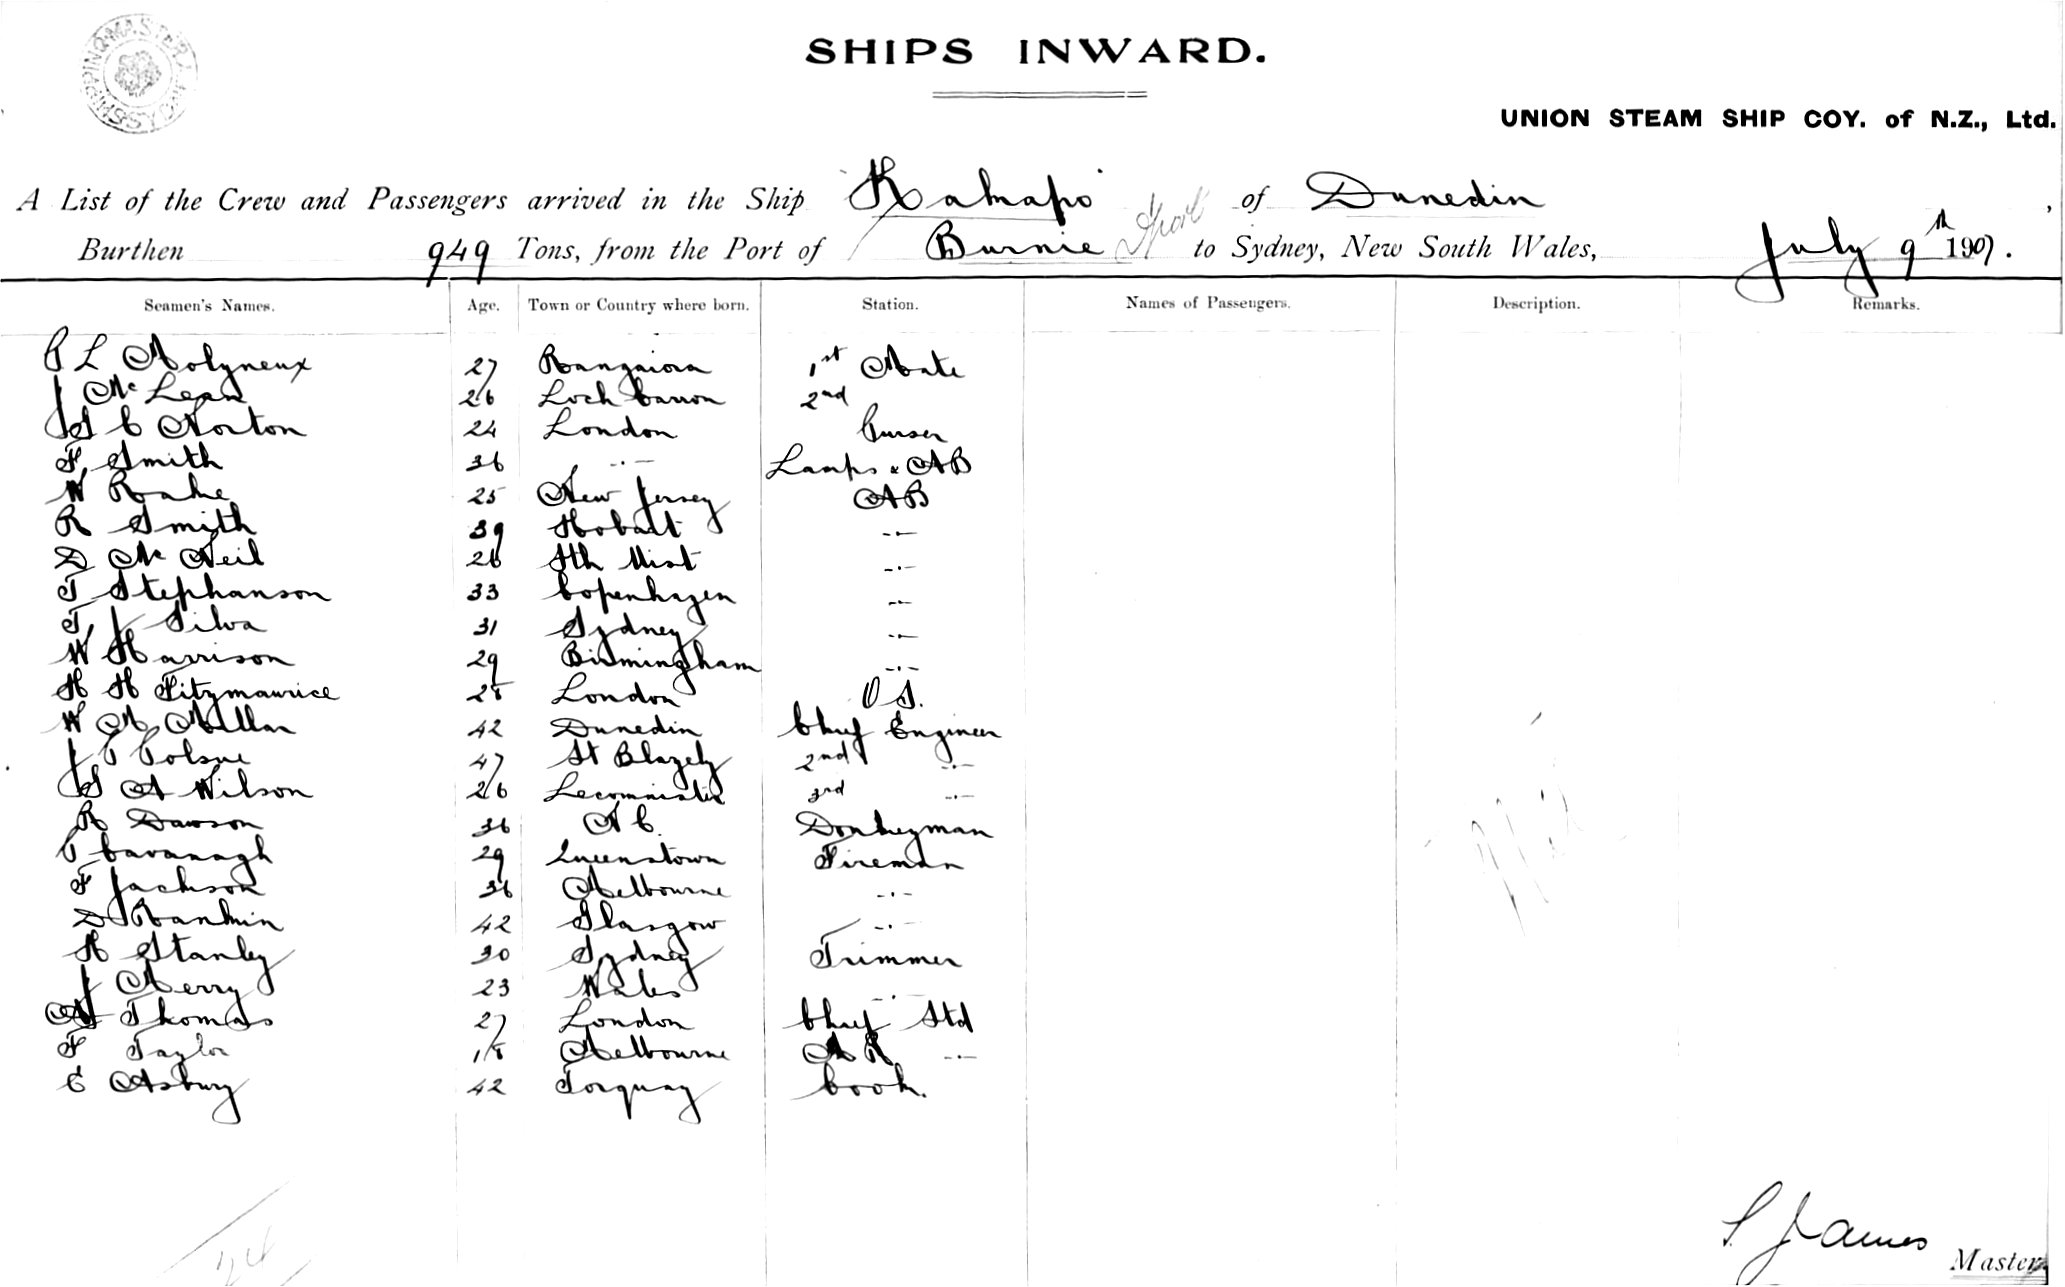 SHIPPING MASTER SYDNEY
SHIPS INWARD.
UNION STEAM SHIP COY. of N.Z., Ltd.
A List of the Crew and Passengers arrived in the Ship "Kakapo" of Dunedin,
Burthen 949 Tons, from the Port of Burnie to Sydney, New South Wales, July 9th 1907.
Seamen's Names. Age. Town or Country where born. Station. Names of Passengers. Description. Remarks.
P L Molyneux 27 Rangiora 1st Mate
J McLean 26 Loch Carron 2nd
S C Norton 24 London Purser
F Smith 36 -·- Lamps & AB
W Roake 25 New Jersey AB
R Smith 39 Hobart -·-
D McNeil 26 Sth Uist -·-
T Stephanson 33 Copenhagen -·-
T J Silva 31 Sydney -·-
W Harrison 29 Birmingham -·-
H H Fitzmaurice 28 London O S.
W M Millar 42 Dunedin Chief Engineer
J P 47 St Blazely 2nd -·-
S A Wilson 26 Leominster 3rd -·-
R Dawson 36 N C. Donkeyman
P Cavanagh 29 Queenstown Fireman
F Jackson 36 Melbourne -·-
D Rankin 42 Glasgow -·-
H Stanley 30 Sydney Trimmer
J Merry 23 Wales -·-
Thomas 27 London Chief Std
F Taylor 18 Melbourne -·-
E Asbury 42 Torquay Cook.
24
S. James Master